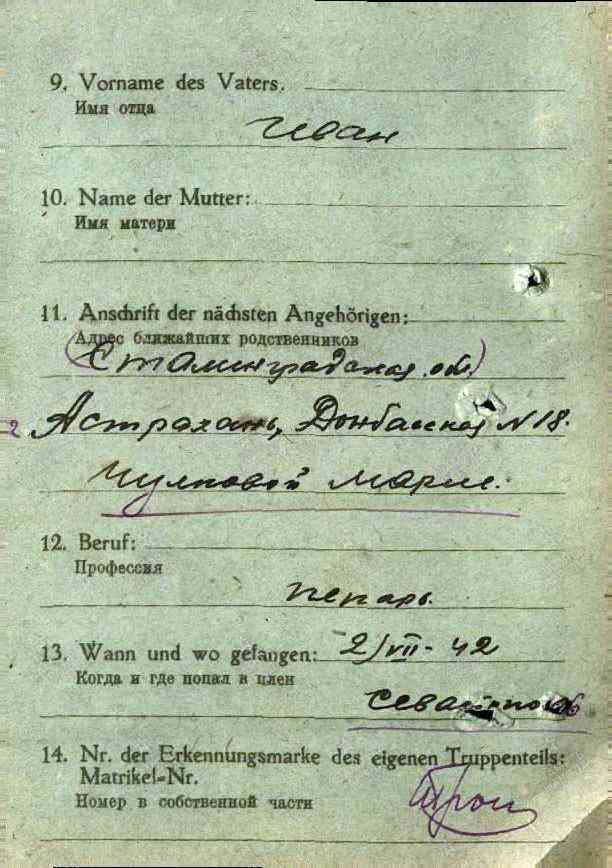 9. Vorname des Vaters.
Имя отца
Иван
10. Name der Mutter:
Имя матери
11. Anschrift der nächsten Angehörigen:
Адрес ближайших родственников
(Сталинградская обл.)
г. Астрахань, Донбасская N 18.
Чулковой Марие.
12. Beruf:
Профессия
пекарь.
13. Wann und wo gefangen: 2/VII - 42
Когда и где попал в плен
Севастополь
14. Nr. der Erkennungsmarke des eigenen Truppenteils:
Matrikel-Nr.
Номер в собственной части